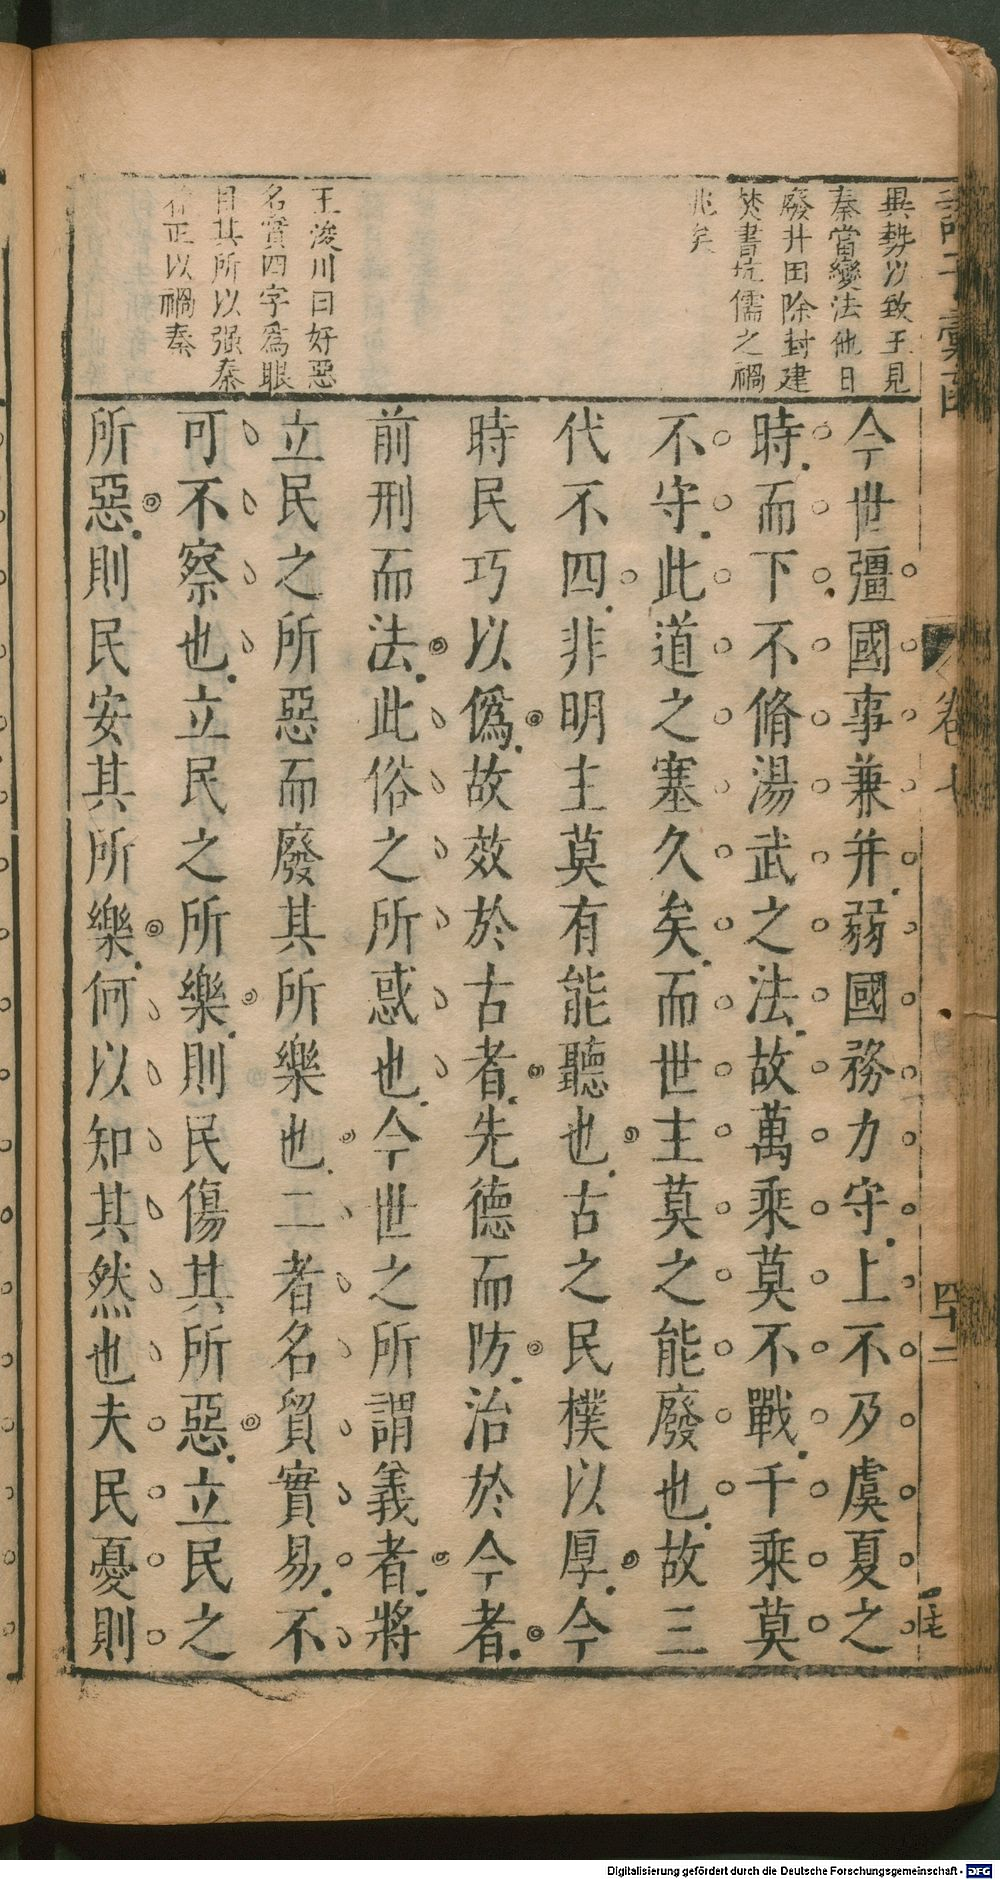 異勢以致王見
秦當變法他日
廢井田除封建
焚書坑儒之禍
兆矣
王浚川曰好惡
名實四字爲眼
目其所以强秦
在正以禍秦
今世彊國事兼并弱國務力守上不及虞夏之
時而下不脩湯武之法故萬乘莫不戰千乘莫
不守此道之塞久矣而世主莫之能廢也故三
代不四非明主莫有能聽也古之民樸以厚今
時民巧以僞故效於古者先德而防治於今者
前刑而法此俗之所惑也今世之所謂義者將
立民之所惡而廢其所樂也二者名貿實易不
可不察也立民之所樂則民傷其所惡立民之
所惡則民安其所樂何以知其然也夫民憂則
卷七
四十二
Digitalisierung gefördert durch die Deutsche Forschungsgemeinschaft - DFG